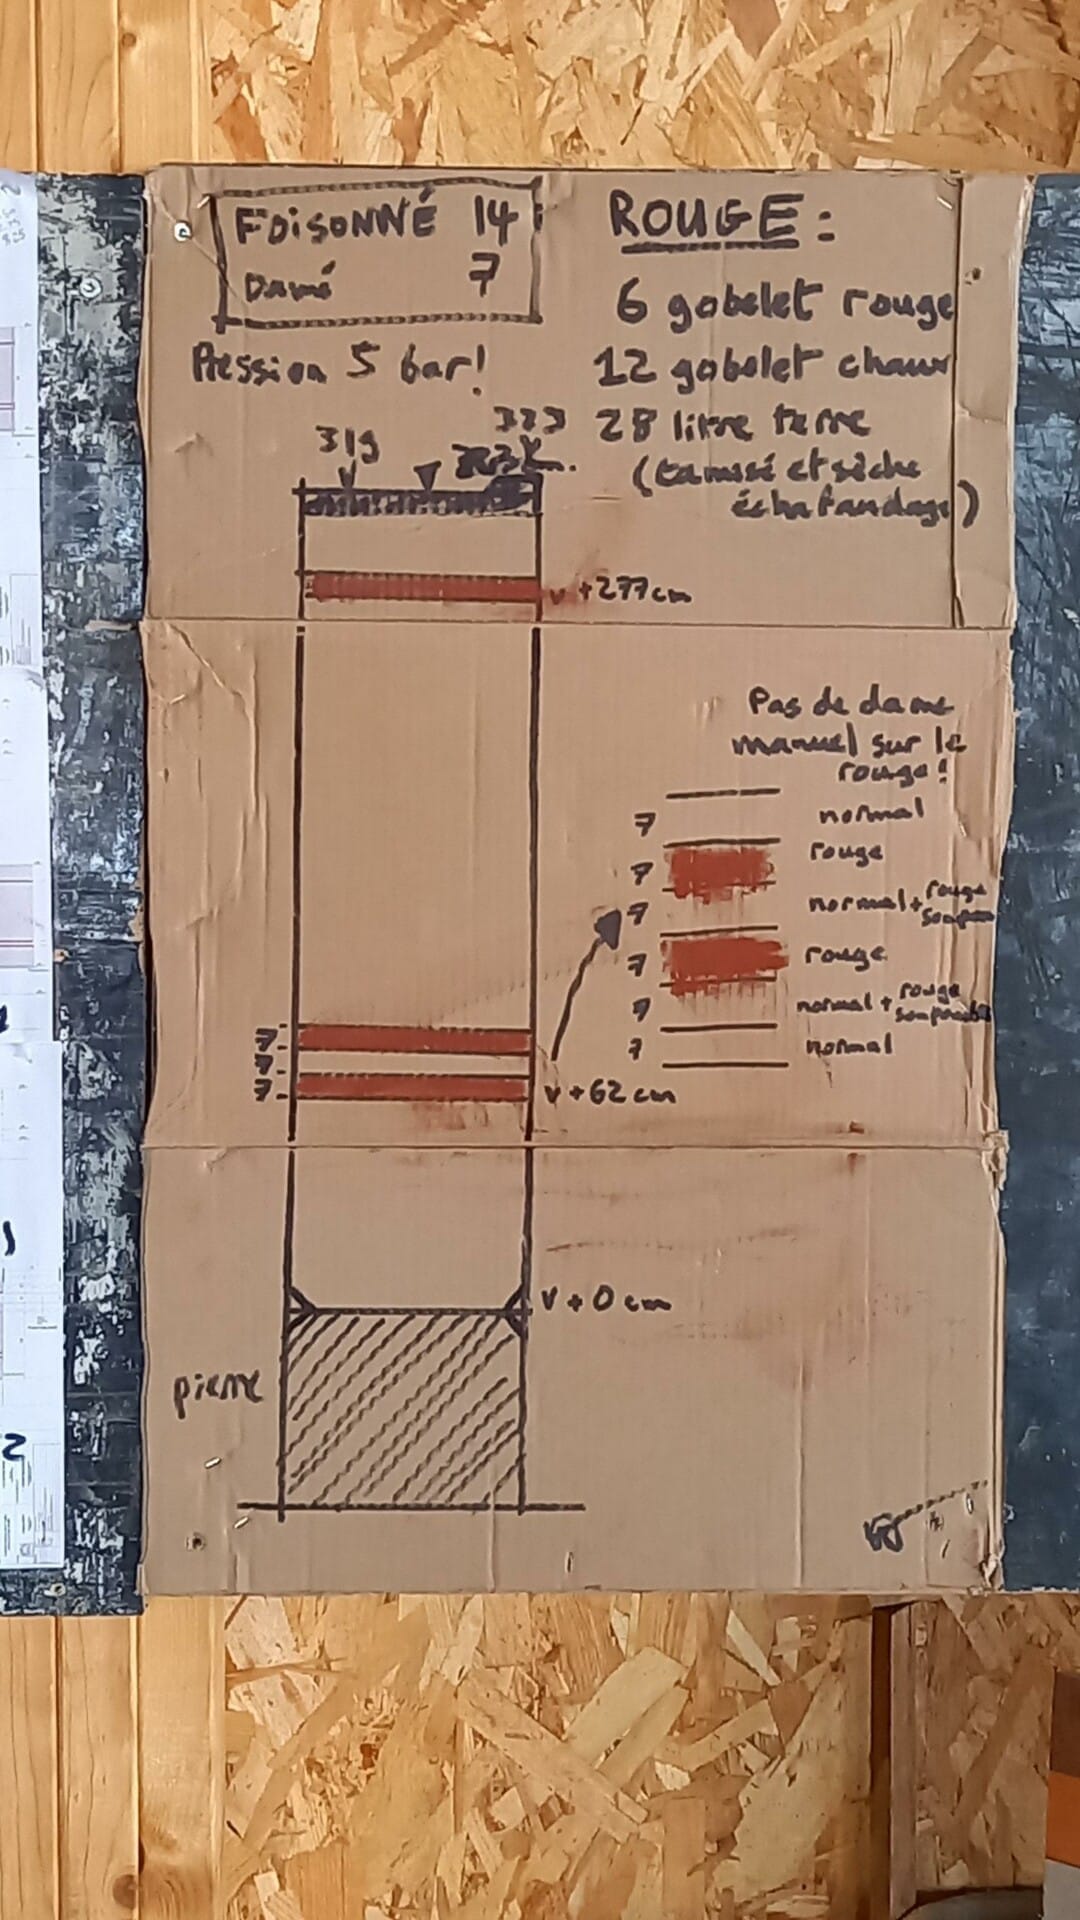 FOISONNÉ 14
Damé 7
Pression 5 bar!
ROUGE:
6 gobelet rouge
12 gobelet chaux
28 litre terre
(tamisé et sèche
échafaudage)
319
323
v +277cm
Pas de dame
manuel sur le
rouge!
7 normal
7 rouge
7 normal + rouge
7 rouge
7 normal + rouge
7 normal
7
7
7
v +62cm
v +0cm
pierre
2